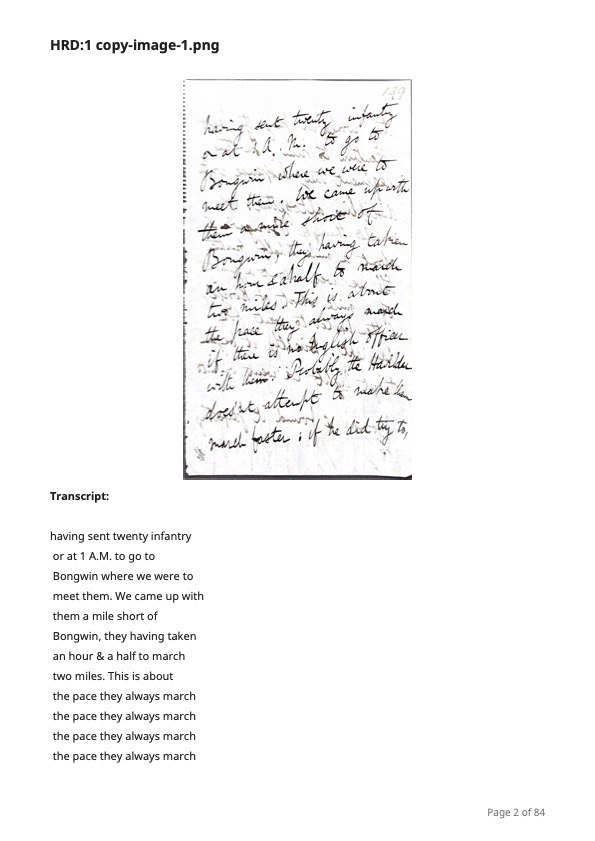 HRD:1 copy-image-1.png
139
having sent twenty infantry
or at 1 A.M. to go to
Bongwin where we were to
meet them. We came up with
them a mile short of
Bongwin, they having taken
an hour & a half to march
two miles. This is about
the pace they always march
if there is no English officer
with them. Probably the Havildar
doesn't attempt to make them
march faster; if he did try to,
Transcript:
having sent twenty infantry
or at 1 A.M. to go to
Bongwin where we were to
meet them. We came up with
them a mile short of
Bongwin, they having taken
an hour & a half to march
two miles. This is about
the pace they always march
the pace they always march
the pace they always march
the pace they always march
Page 2 of 84